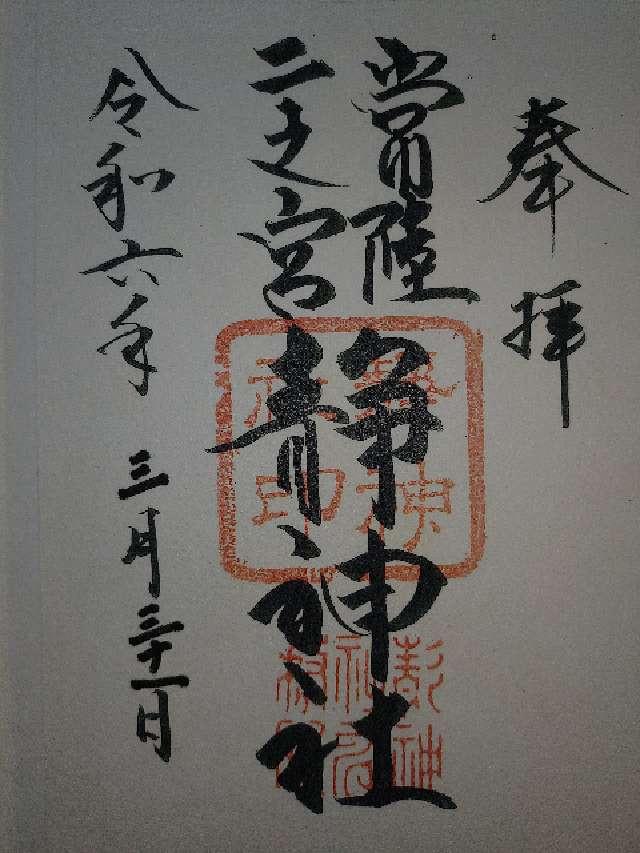 奉拝
常陸
二之宮
静神社
令和六年 三月三十一日